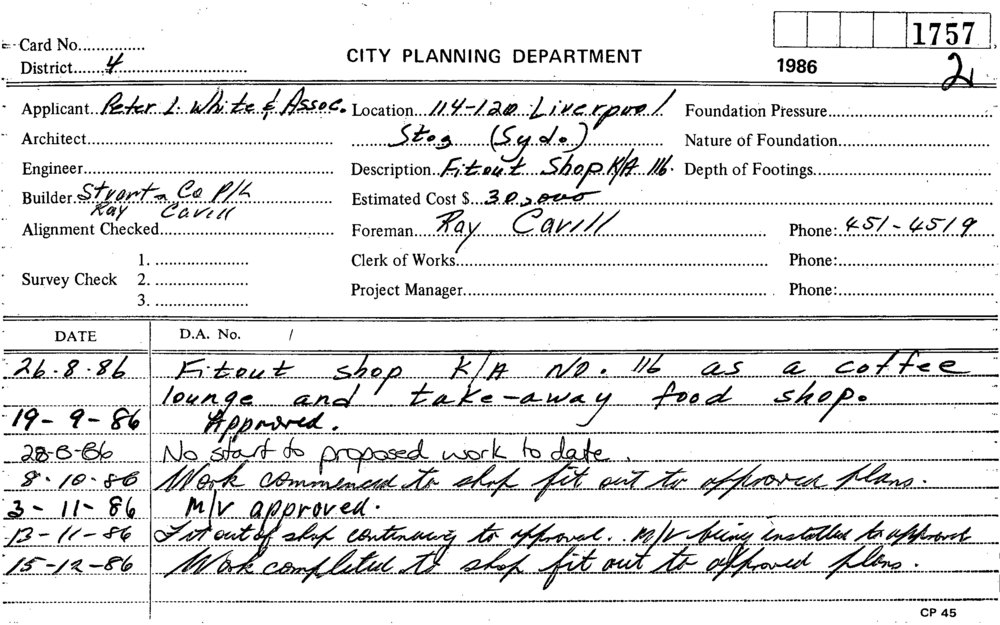 Card No............... 1757
District........4............................ CITY PLANNING DEPARTMENT 1986 2
Applicant Peter L. White & Assoc. Location 114-120 Liverpool Foundation Pressure
Architect Stog (Sydo) Nature of Foundation
Engineer Description Fitout Shop K/A 116. Depth of Footings
Builder Stuart & Co P/L Estimated Cost $ 30,000
Ray Cavill
Alignment Checked Foreman Ray Cavill Phone: 451-4519
1. Clerk of Works Phone:
Survey Check 2.
3. Project Manager Phone:
DATE D.A. No. /
26.8.86 Fitout shop K/A NO. 116 as a coffee
lounge and take-away food shop.
19-9-86 Approved.
28-8-86 No start to proposed work to date.
8.10.86 Work commenced to shop fit out to approved plans.
3-11-86 M/V approved.
13-11-86 Fit out of shop continuing to approval. M/V being installed to approval
15-12-86 Work completed to shop fit out to approved plans.
CP 45